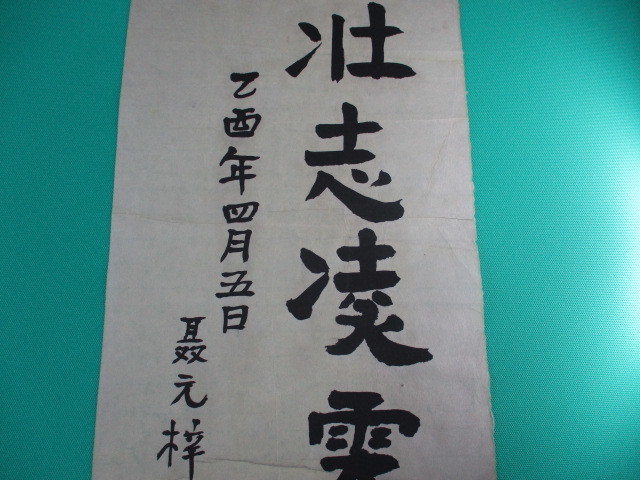 壮志凌雲
乙酉年四月五日
聂元梓